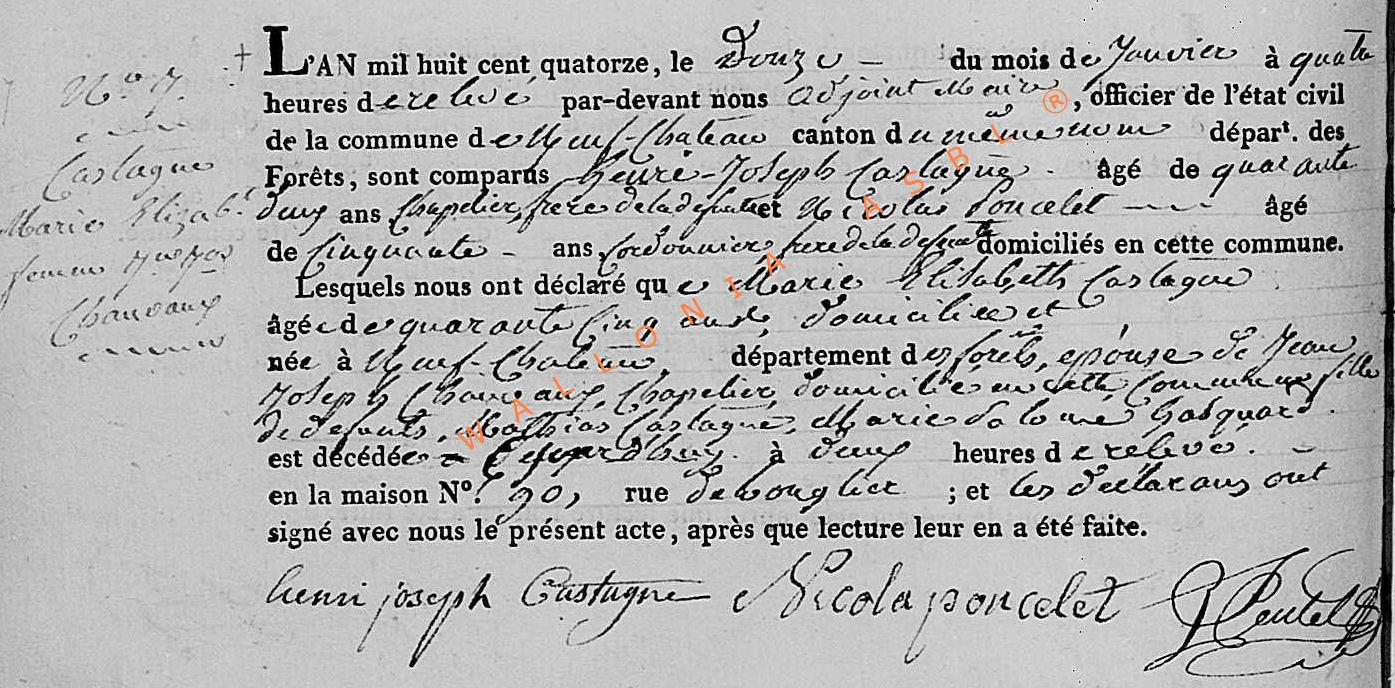 N° 7.
Castagne
Marie Elizab.
femme
Chauvaux
L'AN mil huit cent quatorze, le Douze du mois de Janvier à quatre
heures de relevé par-devant nous adjoint Maire, officier de l'état civil
de la commune de Neuf-Chateau canton du même nom dépar<sup>t</sup>. des
Forêts, sont comparus henri-Joseph Castagne. âgé de quarante
deux ans Chapelier, frere de la defunte et Nicolas Poncelet âgé
de Cinquante - ans Cordonnier, frere de la defunte domiciliés en cette commune.
Lesquels nous ont déclaré que Marie Elisabeth Castagne
âgée de quarante Cinq ans, domiciliée et
née à Neuf-Chateau, département des forêts, epouse de Jean
Joseph Chauvaux, Chapelier, domicilié en cette Commune, fille
de defunts, Mathias Castagne, Marie Salomé hasquard.
est décédée aujourd'huy. à deux heures de relevé.
en la maison N°. 90, rue ; et les declarans ont
signé avec nous le présent acte, après que lecture leur en a été faite.
henri joseph Castagne Nicola poncelet
WALLONIA ASBL ®